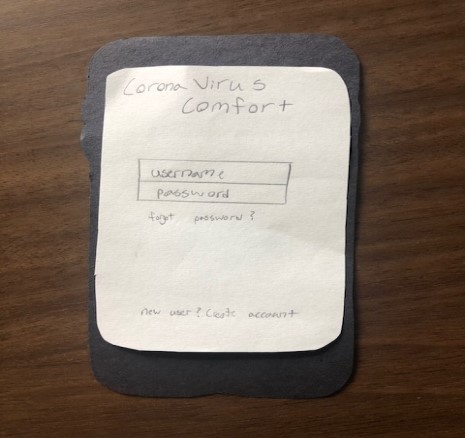 Corona Virus
Comfort
username
password
forgot password?
new user? Create account